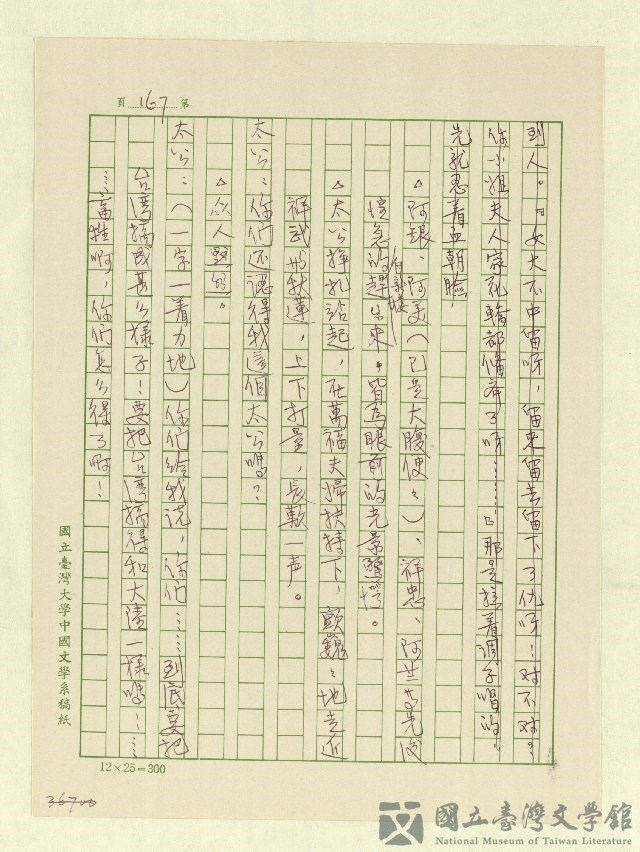 第 167 頁
到人。『女大不中留呀，留來留去留下了仇呀！对不对？
你小姐夫人家花轎都備齊了呀……』那是捏着調子唱的。
先就忍着血朝臉
△阿銀、阿美（已是大腹便々）、祥忠、阿芷等先後
自家後
惶急的趕出來。皆為眼前的光景驚愕。
△太公掙扎站起，在萬福夫婦扶持下，顫巍々地走近
祥武和秋蓮，上下打量，長歎一声。
太公：你們还認得我這個太公嗎？
△众人
太公：（一字一着力地）你們給我说，你們……到底要把
台湾搞成甚么樣子！要把台湾搞得和大陸一樣嗎！……
……畜牲啊，你們怎么得了啊！
國立臺灣大學中國文學系稿紙
12×25＝300
國立臺灣文學館
National Museum of Taiwan Literature